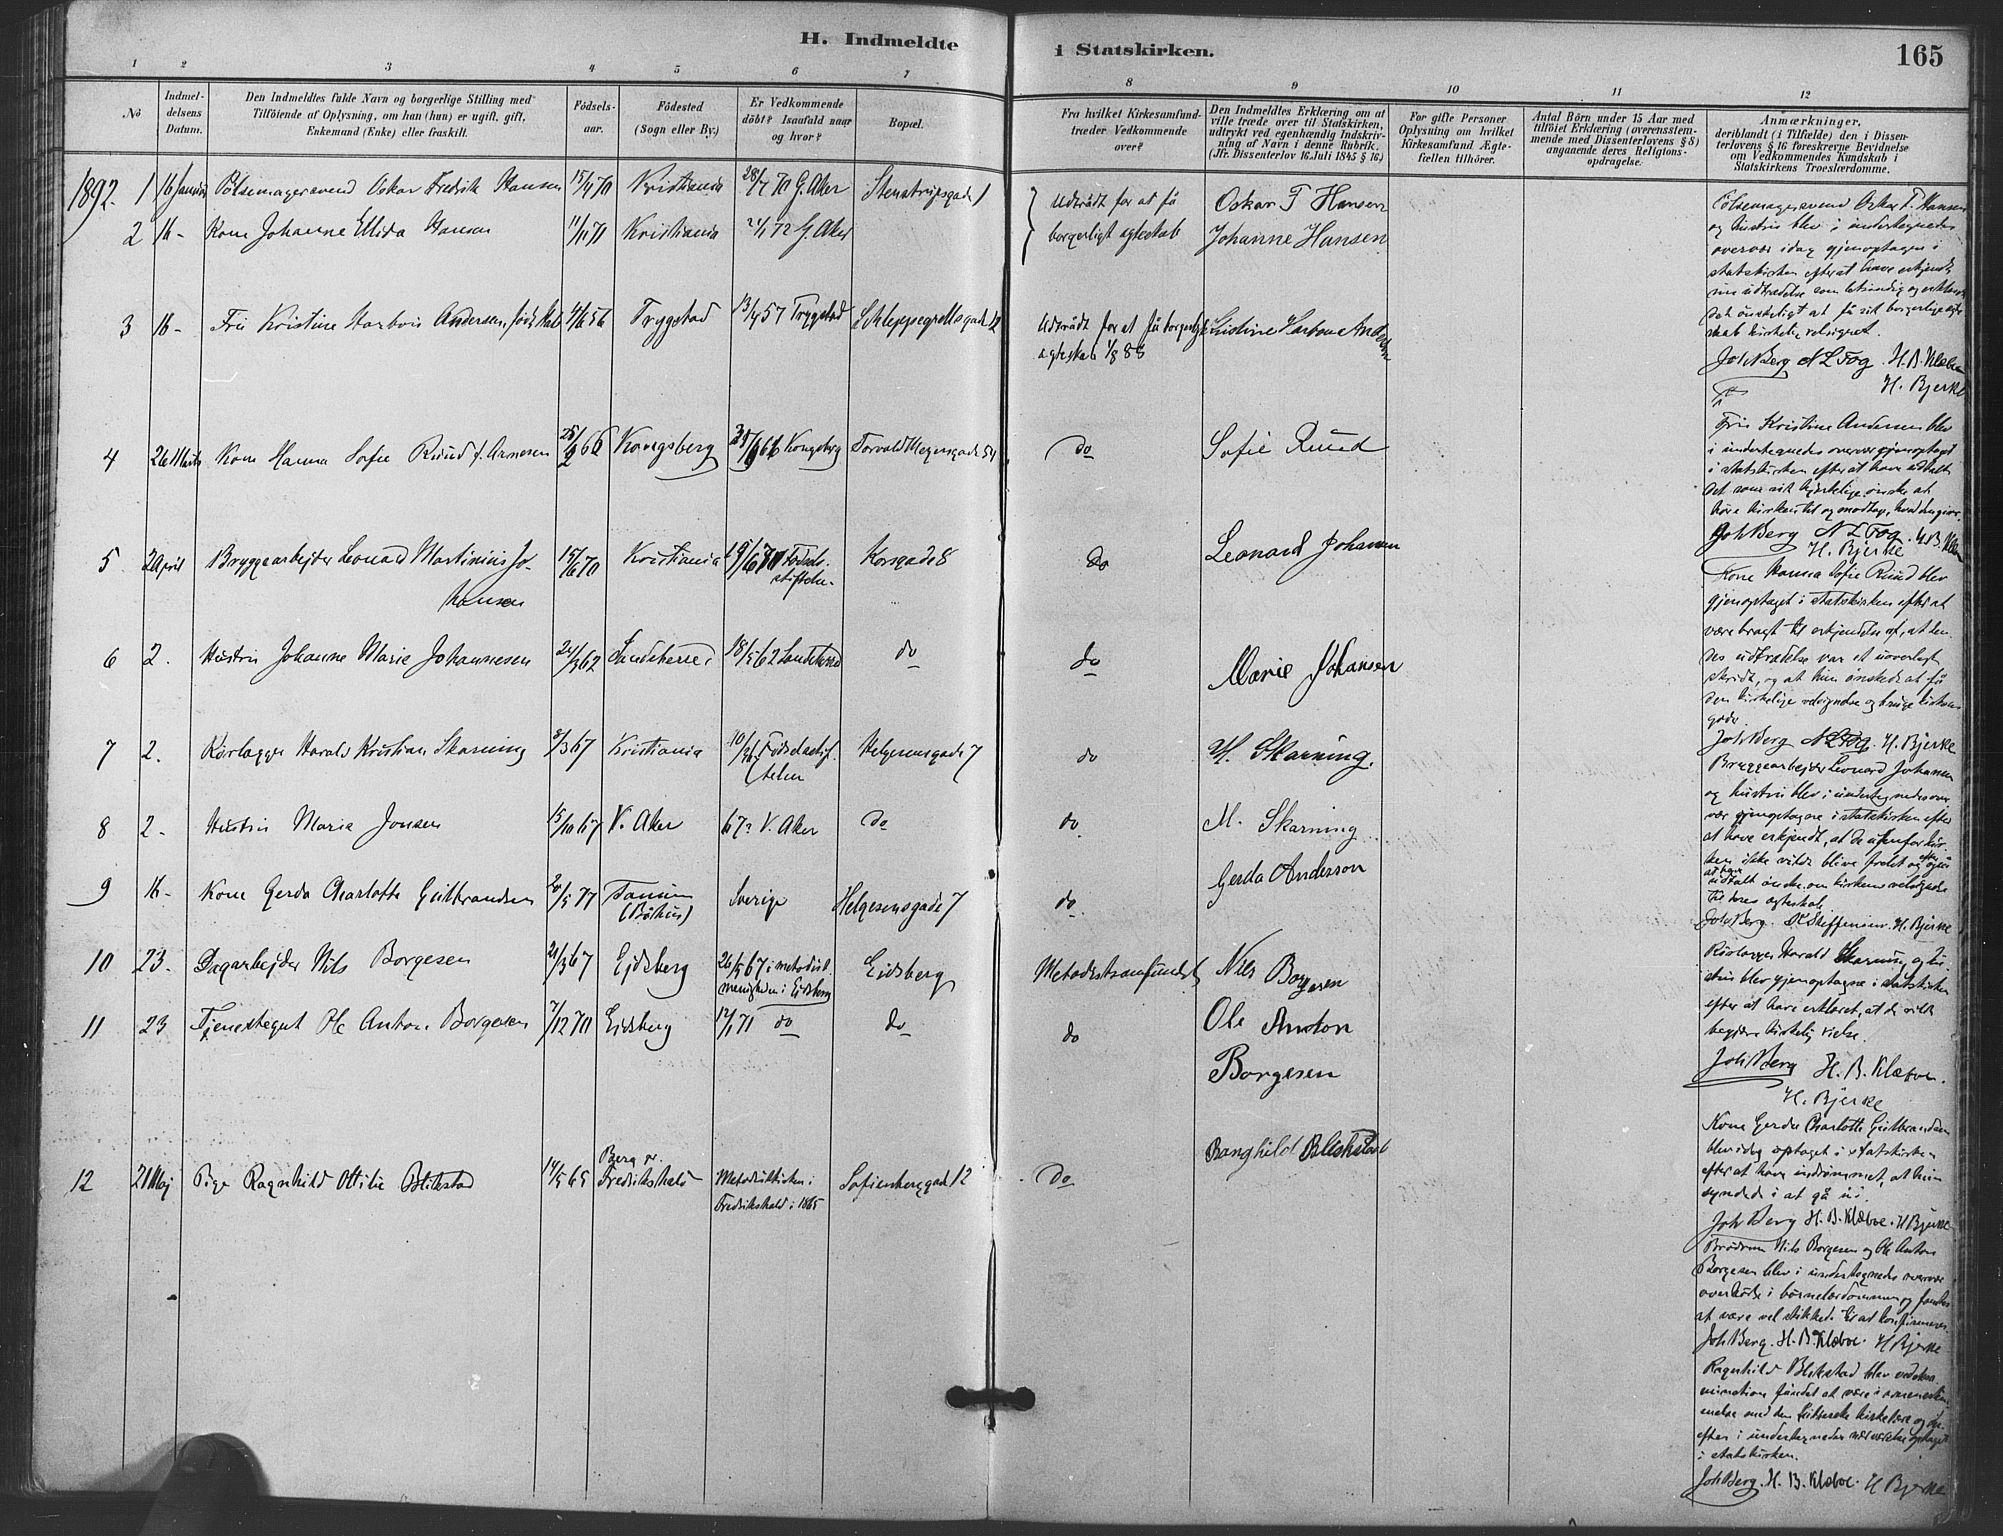 H. Indmeldte i Statskirken. 165
1 2 3 4 5 6 7 8 9 10 11 12
No
Indmeldelsens Datum.
Den Indmeldtes fulde Navn og borgerlige Stilling med
Tilföiende af Oplysning, om han (hun) er ugift, gift,
Enkemand (Enke) eller fraskilt.
Födselsaar.
Födested
(Sogn eller By.)
Er Vedkommende
döbt? Isaafald naar
og hvor?
Bopæl.
Fra hvilket Kirkesamfund
træder Vedkommende
over?
Den Indmeldtes Erklæring om at
ville træde over til Statskirken,
udtrykt ved egenhændig Indskrivning
af Navn i denne Rubrik.
(Jfr. Dissenterlov 16 Juli 1845 § 16.)
For gifte Personer
Oplysning om hvilket
Kirkesamfund Ægtefællen
tilhörer.
Antal Börn under 15 Aar med
tilföiet Erklæring (overensstemmende
med Dissenterlovens § 8)
angaaende deres Religionsopdragelse.
Anmærkninger,
deriblandt (i Tilfælde) den i Dissenterlovens
§ 16 foreskrevne Bevidnelse
om Vedkommendes Kundskab i
Statskirkens Troeslærdomme.
1892. 1 16 Januar Pølsemagersvend Oskar Fredrik Hansen 15/4 70 Kristiania 28/7 70 G. Aker Stenstrupsgade 1 Udtrådt for at få Oskar F Hansen
2 16 - Kone Johanne Ellida Hansen 11/11 71 Kristiania 21/1 72 G. Aker borgerligt egteskab Johanne Hansen
3 16 - Fru Kristine Andersen, 4/6 56 Trygstad 13/4 57 Trygstad Schleppegrellsgade 12 Udtrådt for at få borgerligt
egteskab 1/8 88
4 26 Marts Kone Hanna Sofie Ruud f. Arnesen 66 Kongsberg Kongsberg Torvald Meyersgade 54 do Sofie Ruud
5 2 April Bryggearbejder Leonard Martinius Johansen 15/6 70 Kristiania Fødselsstiftelsen Korsgade 8 do Leonard Johansen
6 2. Hustru Johanne Marie Johannesen 21/3 62 Sandeherred 18/5 62 Sandeherred do do Marie Johansen
7 2. Harald Kristian Skarning 8/3 67 Kristiania Fødselsstiftelsen Helgesensgade 7 do H. Skarning.
8 2 - Hustru Maria Jonsen 15/10 67 V. Aker 67? V. Aker do do M. Skarning
9 16 - Kone Gerda Charlotte Gulbrandsen 20/5 77 Tanum
(Bohus) Sverige Helgesensgade 7 do. Gerda Anderson
10 23. Dagarbejder Nils Borgesen 21/3 67 Ejdsberg 26/5 67 i metodistmenigheden i Ejdsberg Eidsberg Metodistsamfundet Nils Borgesen
11 23 Tjenestegut Ole Anton Borgesen 7/12 70 Eidsberg 12/1 71 do do do Ole Anton
Borgesen
12 21 Maj Pige Ragnhild Ottilie Blikstad 14/5 65 Berg pr.
Fredrikshald Metodistkirken i
Fredrikshald i 1865 Sofienberggade 12 do Ranghild Blikstad
Pølsemagersvend Oskar F. Hansen
og hustru blev i undertegnedes
overvær idag gjenoptagen i
statskirken efter at have erkjendt
sin udtrædelse som letsindig og erklæret
det ønskeligt at få sit borgerlige egteskab
kirkelig velsignet.
Joh Berg N L Fog. H. B. Klæboe
H. Bjerke
Fru Kristine Andersen blev
i undertegnedes overvær gjenoptaget
i statskirken efter at have udtalt
det som sit hjertelige ønske at
høre kirken til og modtage, hvad den giver.
Joh Berg N L Fog. H B Klæboe
H. Bjerke
Kone Hanna Sofie Ruud blev
gjenoptaget i statskirken efter at
være bragt til erkjendelse af, at dennes
udtrædelse var et uoverlagt
skridt, og at hun ønskede at få
den kirkelige velsignelse og bruge kirkens
gode.
Joh Berg N L Fog. H. Bjerke
Bryggearbejder Leonard Johansen
og hustru blev i undertegnedes overvær
gjenoptagne i statskirken efter
at have erkjendt, at de udenfor kirken
ikke vilde blive frelst og efter også
at have udtalt ønske om kirkens velsignelse
til deres egteskab.
Joh Berg. Steffensen. H. Bjerke
Harald Skarning og hustru
blev gjenoptagne i statskirken
efter at have erklæret, at de vilde
begjære kirkelig vielse.
Joh Berg H. B. Klæboe.
H. Bjerke
Kone Gerda Charlotte Gulbrandsen
blev idag optaget i statskirken
efter at have indrømmet, at hun
syndede i at gå ud.
Joh Berg H. B. Klæboe. H Bjerke
Brødrene Nils Borgesen og Ole Anton
Borgesen blev i undertegnedes overvær
overhørte i børnelærdommen og fandtes
at være vel skikkede til at konfirmeres.
Joh Berg. H. B. Klæboe. H Bjerke
Ragnhild Blikstad blev ved eksamination
fundet at være i overensstemmelse
med den lutherske kirkelære og derefter
i undertegnedes nærværelse optaget
i statskirken.
Joh Berg. H. B. Klæboe. H Bjerke